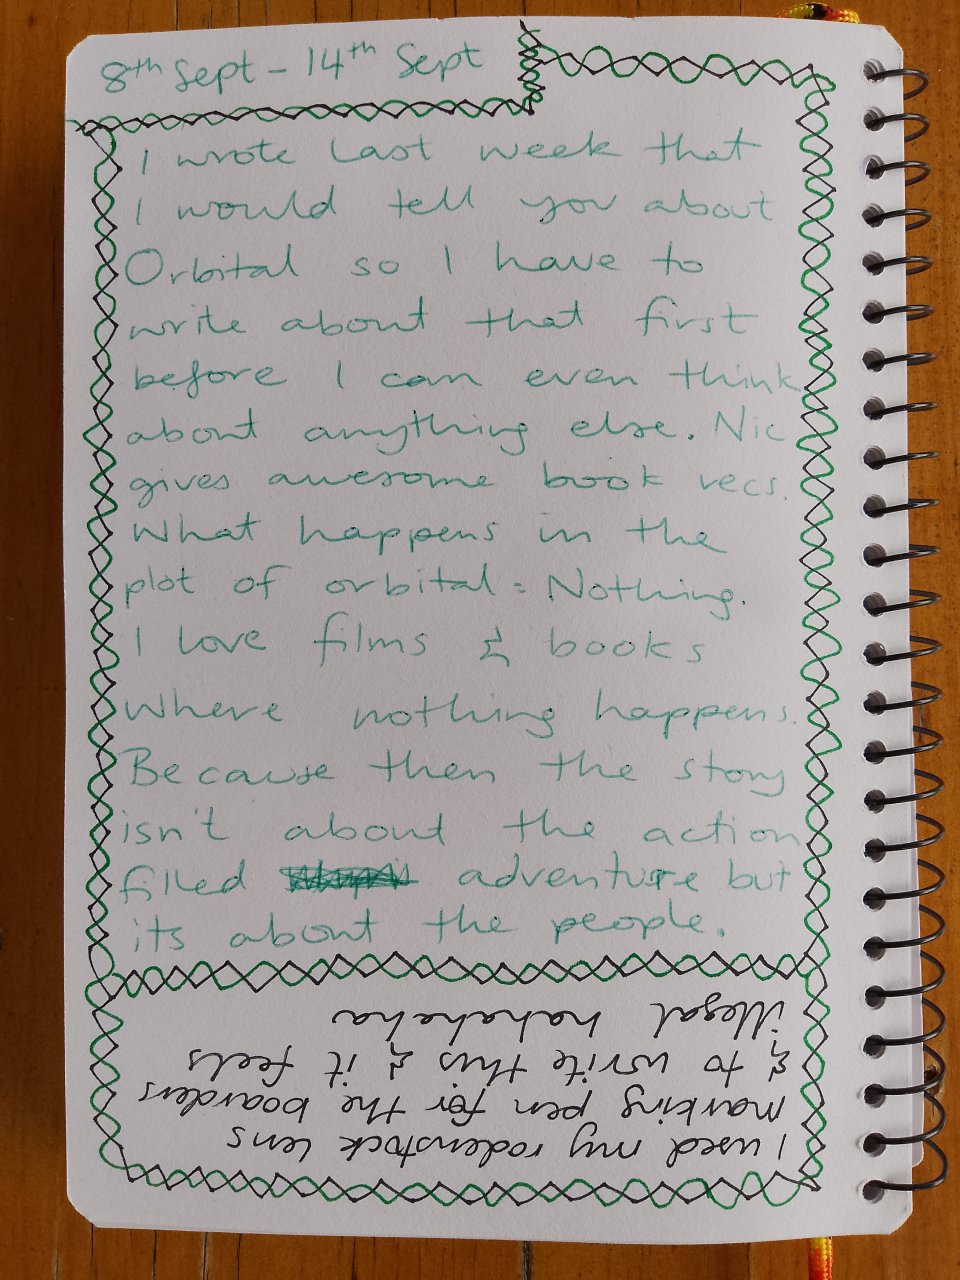 8th Sept - 14th Sept
I wrote last week that
I would tell you about
Orbital so I have to
write about that first
before I can even think
about anything else. Nic
gives awesome book recs.
What happens in the
plot of orbital = Nothing.
I love films & books
where nothing happens.
Because then the story
isn't about the action
filled adventure but
its about the people.
I used my rodenstock lens
marking pen for the boarders
& to write this & it feels
illegal hahaha